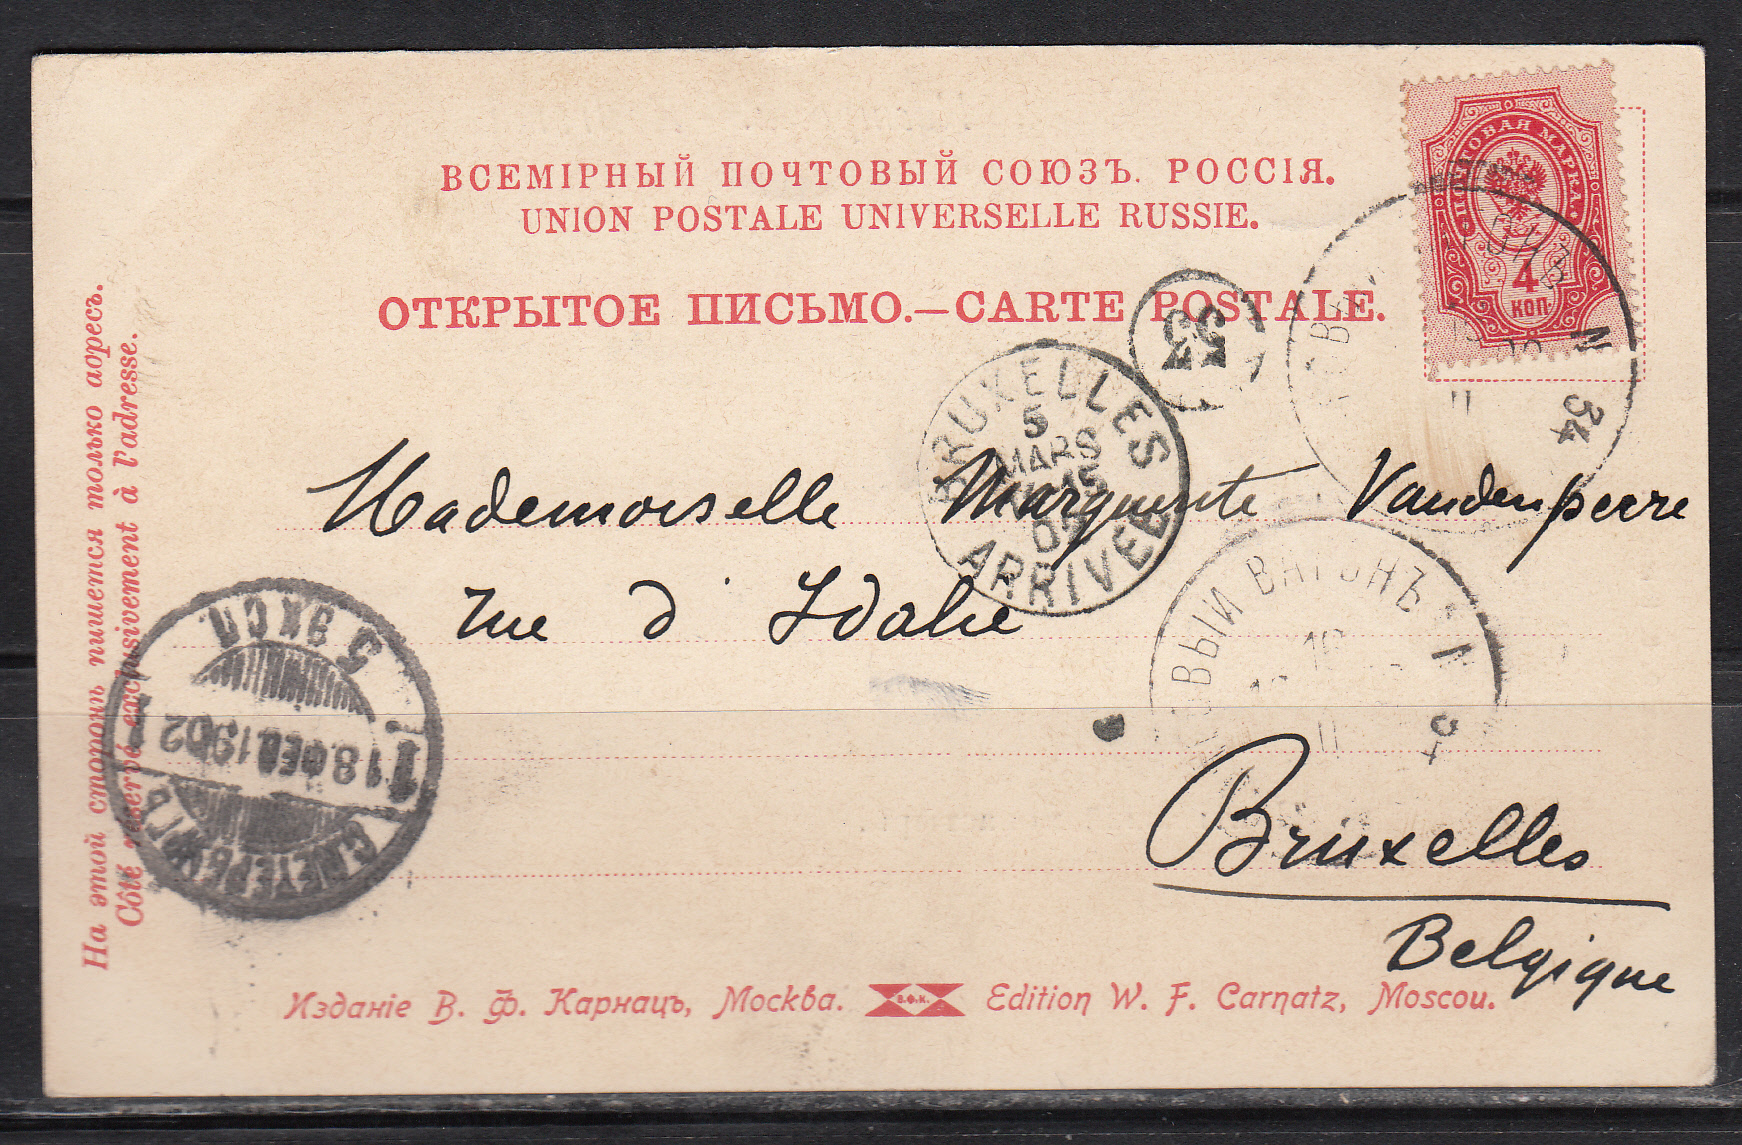 ВСЕМІРНЫЙ ПОЧТОВЫЙ СОЮЗЪ. РОССІЯ.
UNION POSTALE UNIVERSELLE RUSSIE.
ОТКРЫТОЕ ПИСЬМО.—CARTE POSTALE.
ПОЧТОВАЯ МАРКА.
4
КОП
N 34
35
BRUXELLES
5
MARS
15
ARRIVEE
Mademoiselle Marguerite Vandenperre
rue d'Idalie
Bruxelles
Belgique
ВАГОНЪ
С.ПЕТЕРБУРГЪ
1 18 ФЕВ. 1902 1
3 ЭКСП.
На этой сторонѣ пишется только адресъ.
Côté réservé exclusivement à l'adresse.
Изданіе В. Ф. Карнацъ, Москва.
В.Ф.К.
Edition W. F. Carnatz, Moscou.